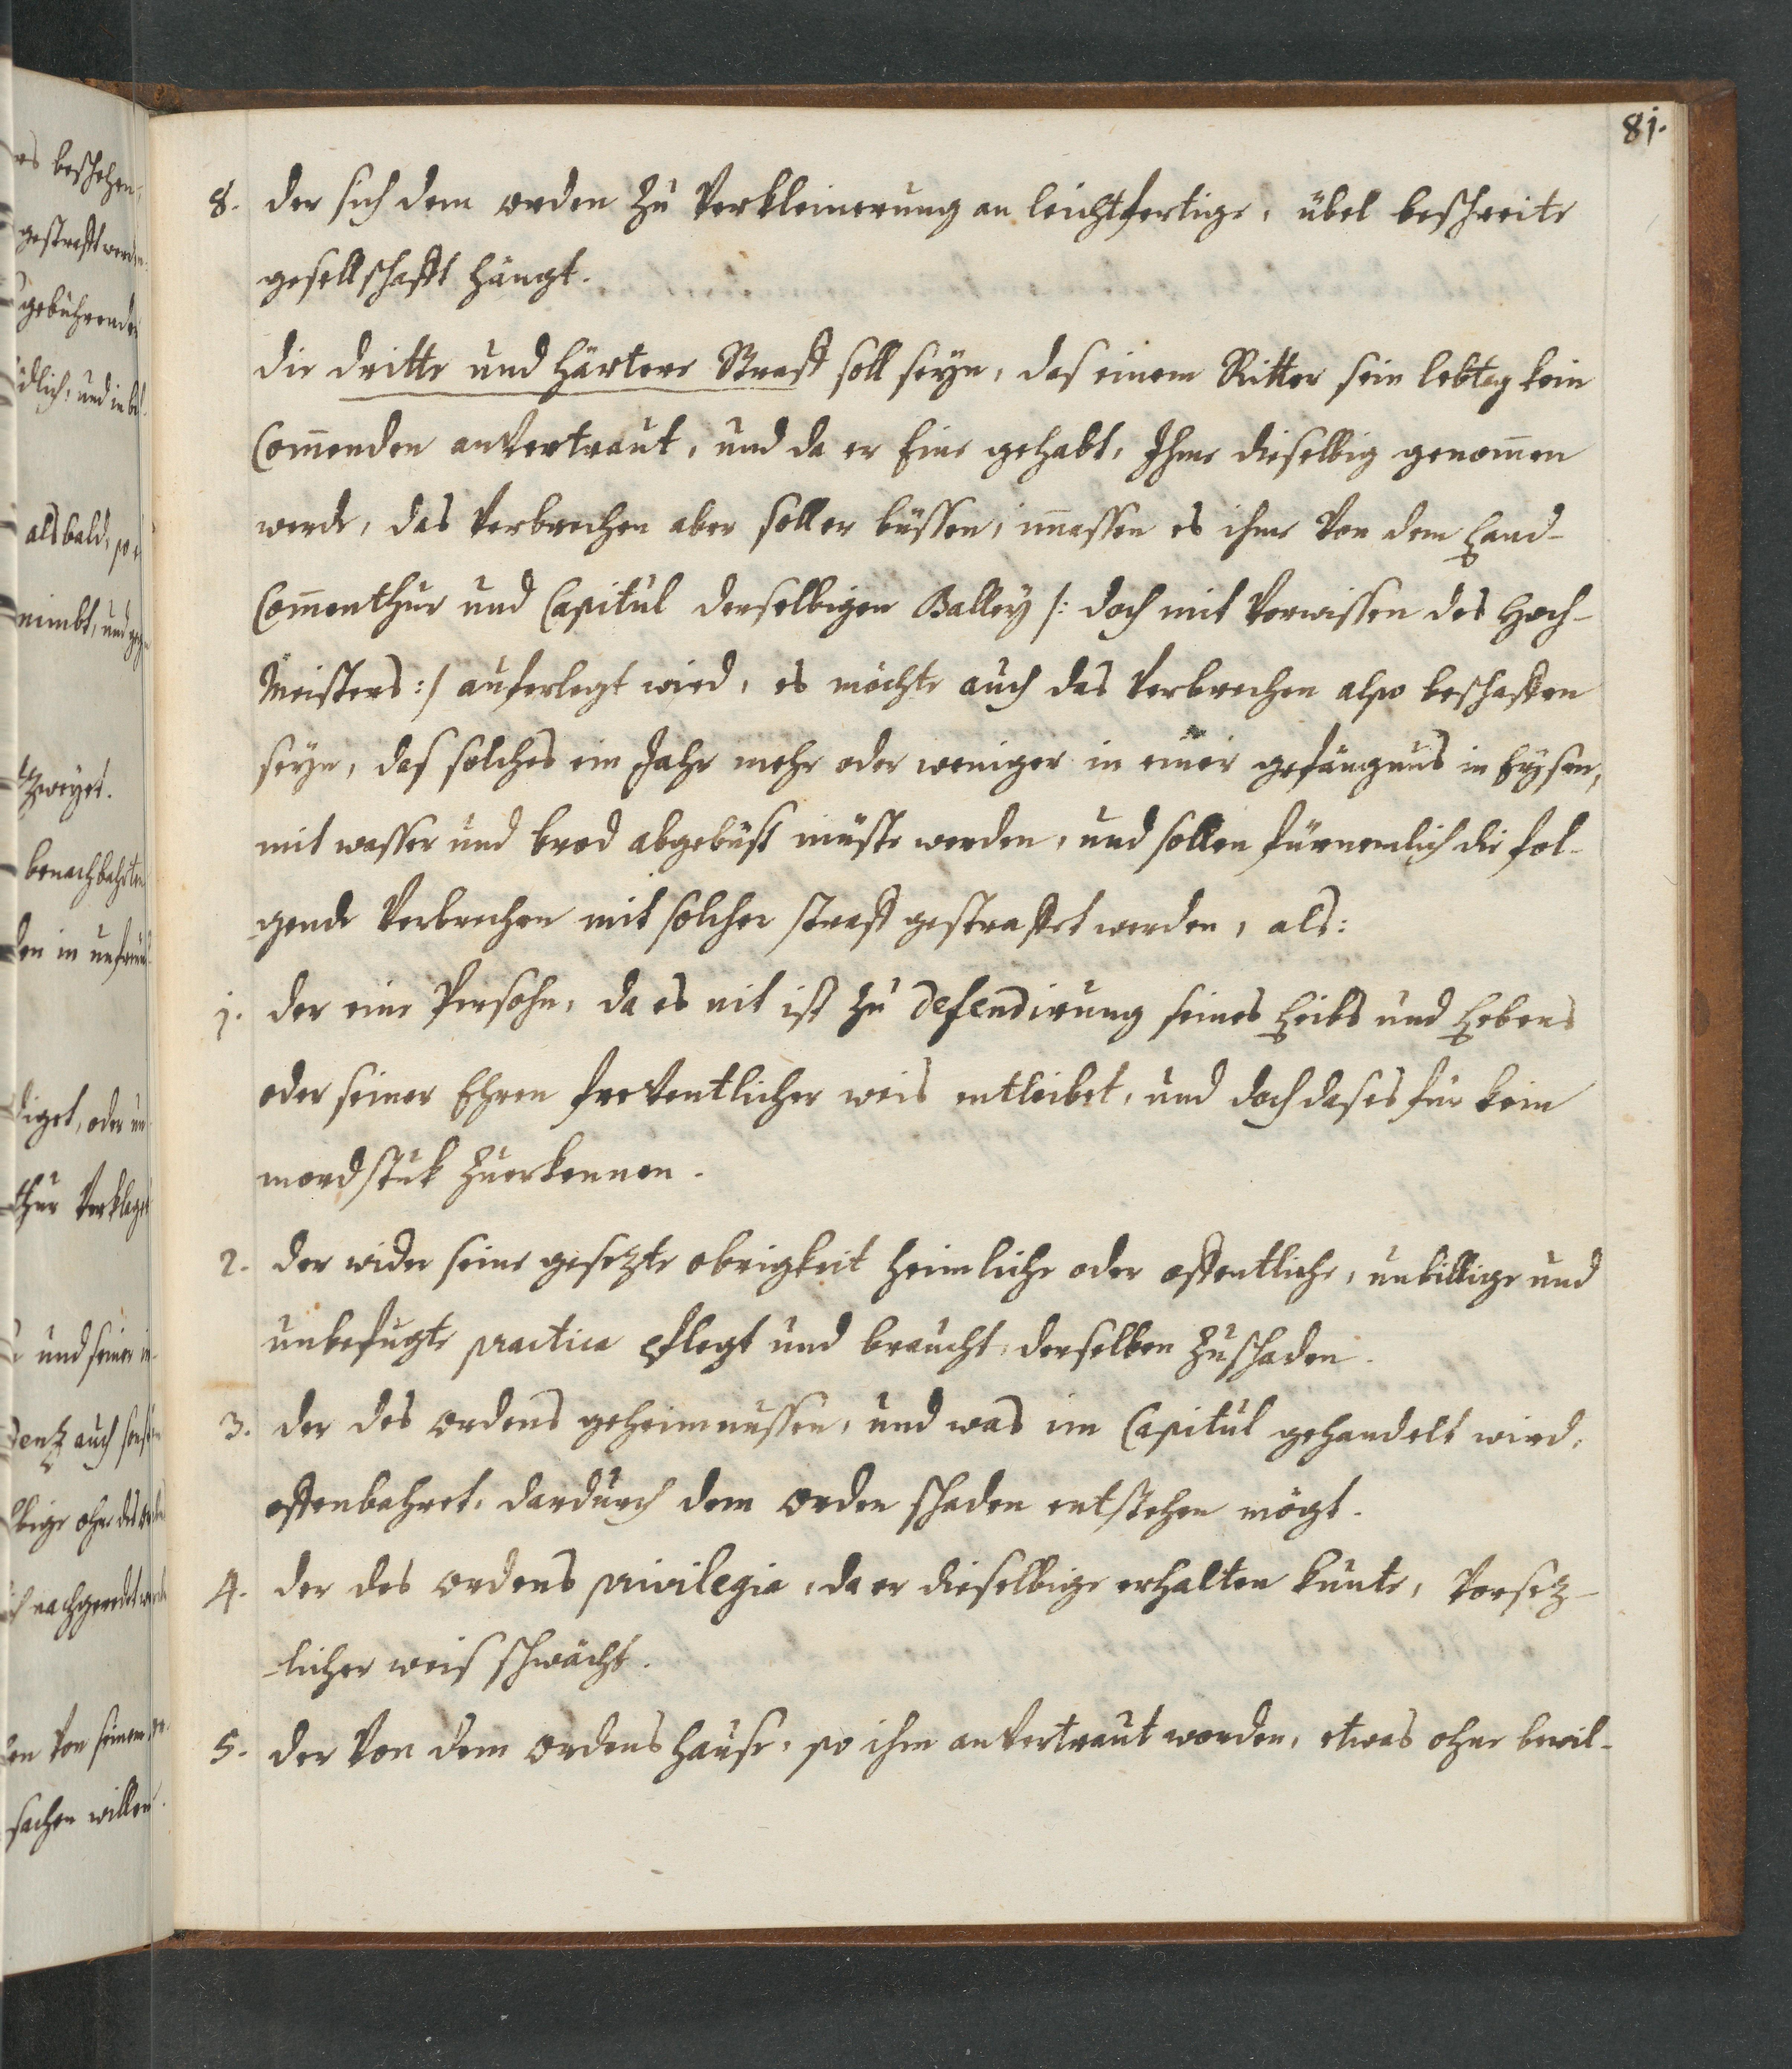 81.
8. der sich dem orden zu verkleinerung an leichtfertige, übel beschreite
gesellschafft hängt.
die dritte und härtere Straff soll seyn, das einem Ritter sein lebtag kein
Com̄enden anvertraut, und da er Eine gehabt, Ihme dieselbig genom̄en
werde, das verbrechen aber soll er büssen, im̄assen es ihme von dem Land-
Com̄enthur und Capitul derselbigen Balley /: doch mit vorwissen des Hoch-
Meisters :/ auferlegt wird, es möchte auch das verbrechen also beschaffen
seyn, das solches ein Jahr mehr oder weniger in einer gefängnus in Eysen,
mit wasser und brod abgebüst müste werden, und sollen fürnemlich die fol-
gende verbrechen mit solcher straff gestraffet werden, als:
1. der eine Persohn, da es nit ist zu defendirung seines Leibs und Lebens
oder seiner Ehren freventlicher weis entleibet, und doch das es für kein
mordstuk zuerkennen.
2. der wider seine gesezte obrigkeit heimliche oder offentliche, unbillige und
unbefugte practica pflegt und braucht, derselben zuschaden.
3. der des ordens geheimnussen, und was im Capitul gehandelt wird,
offenbahret, dardurch dem orden schaden entstehen mögt.
4. der des ordens privilegia, da er dieselbige erhalten kunte, vorsez-
-licher weis schwächt.
5. der von dem ordens hause, so ihm anvertraut worden, etwas ohne bewil-
beschehen
gestrafft werden
gebührende
als bald, so
nimbt, und
benachbahrten
diget, oder un
thur verklaget
und seiner in-
auch
ohne des
von seinem
sachen willen.